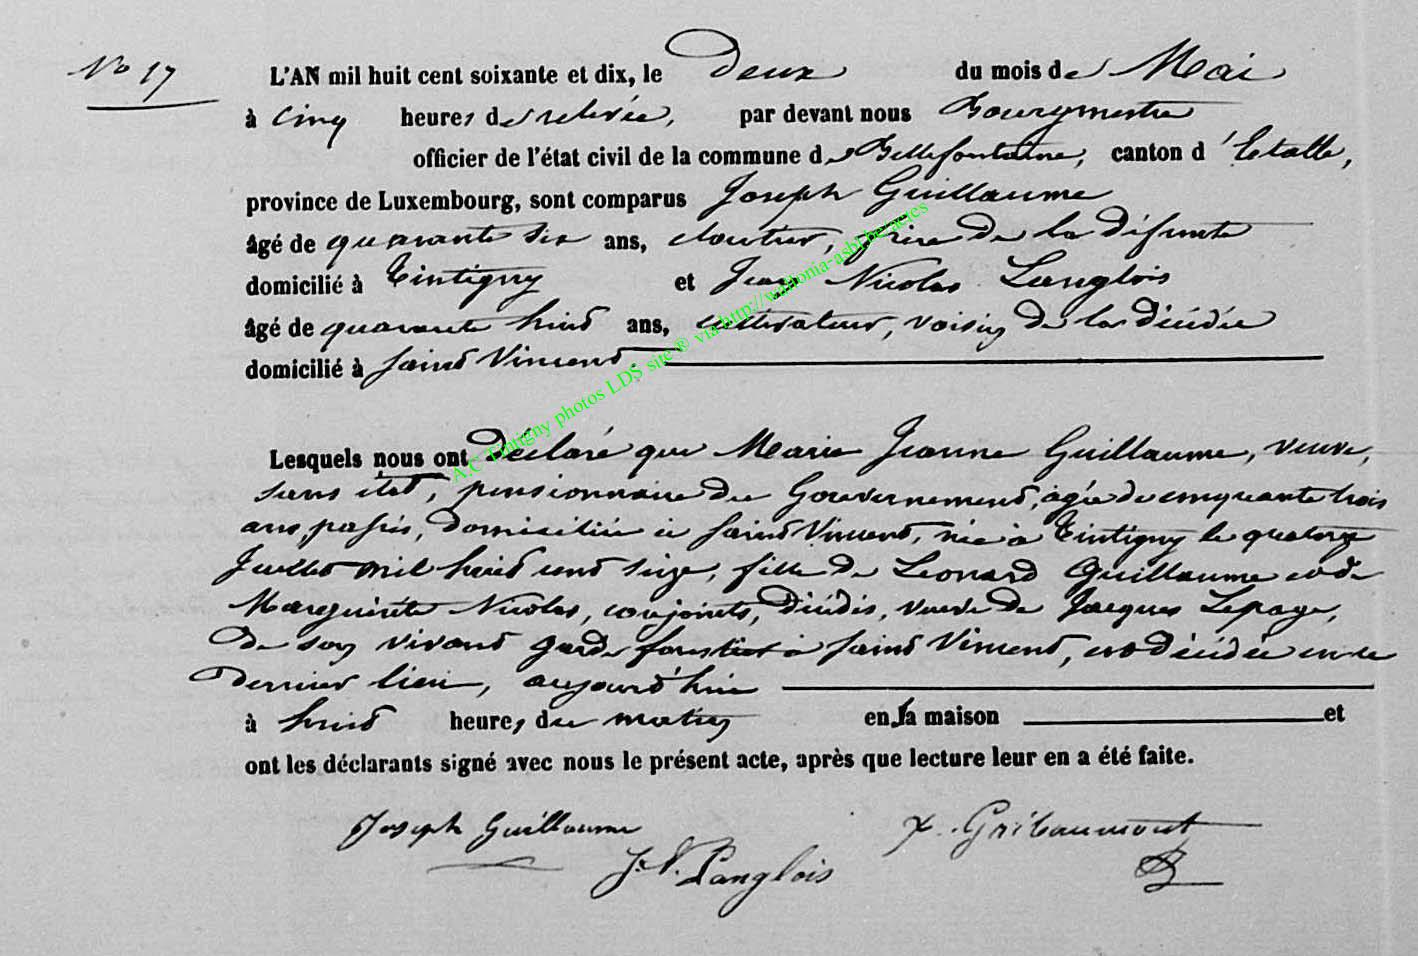 No 17
L'AN mil huit cent soixante et dix, le Deux du mois de Mai
à cinq heures de relevée, par devant nous Bourgmestre
officier de l'état civil de la commune de Bellefontaine, canton d'Etalle,
province de Luxembourg, sont comparus Joseph Guillaume
âgé de quarante six ans, cloutier, frère de la défunte
domicilié à Tintigny et Jean Nicolas Langlois
âgé de quarante huit ans, cultivateur, voisin de la décédée
domicilié à Saint Vincent.
Lesquels nous ont déclaré que Marie Jeanne Guillaume, veuve,
sans état, pensionnaire du Gouvernement, âgée de cinquante trois
ans, passés, domiciliée à Saint Vincent, née à Tintigny le quatorze
Juillet mil huit cent seize, fille de Leonard Guillaume et de
Marguerite Nicolas, conjoints, décédés, veuve de Jacques Lepage,
de son vivant garde forestier à Saint Vincent, est décédée en ce
dernier lieu, aujourd'hui
à huit heures du matin en sa maison et
ont les déclarants signé avec nous le présent acte, après que lecture leur en a été faite.
Joseph Guillaume
J. N. Langlois
Gribaumont
A.C Tintigny photos LDS site ® via http://wallonia-asbl.be/actes